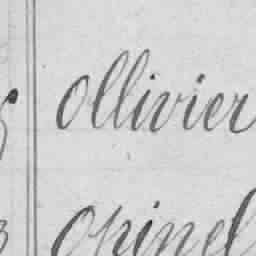 Ollivier
Opinel